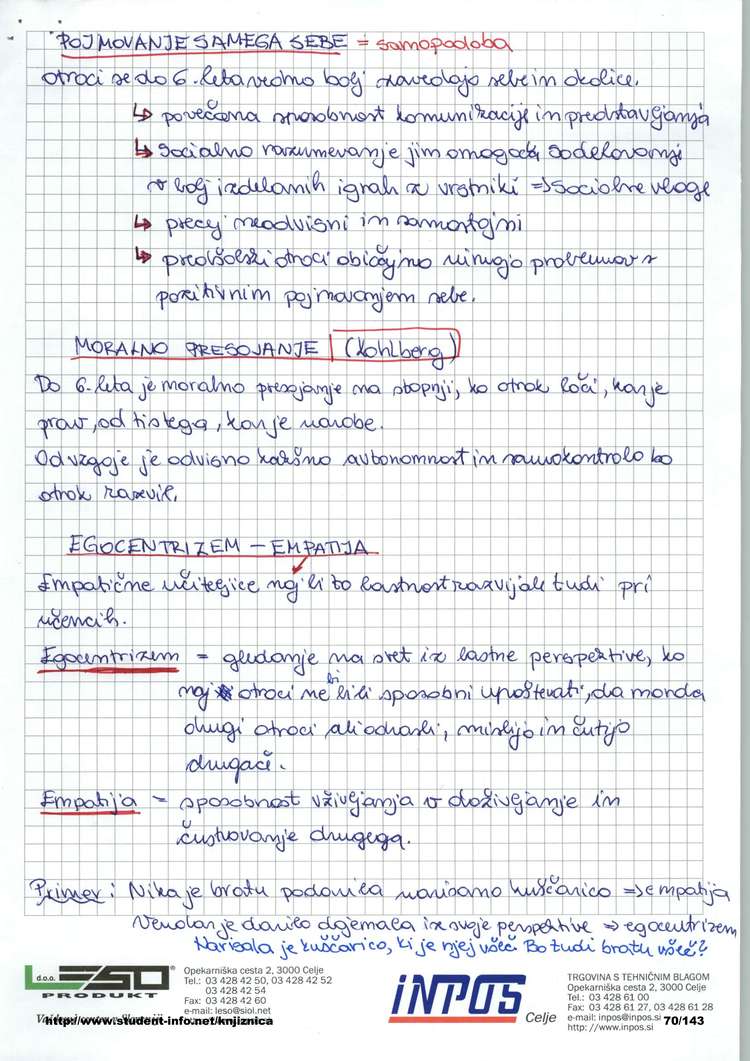 POJMOVANJE SAMEGA SEBE = samopodoba
otroci se do 6. leta vedno bolj zavedajo sebe in okolice.
↳ povečana sposobnost komunikacije in predstavljanja
↳ Socialno razumevanje jim omogoča sodelovanje
v bolj izdelanih igrah z vrstniki => socialne vloge
↳ precej neodvisni in samostojni
↳ predšolski otroci običajno nimajo problemov s
pozitivnim pojmovanjem sebe.
MORALNO PRESOJANJE (Kohlberg)
Do 6. leta je moralno presojanje na stopnji, ko otrok loči, kar je
prav, od tistega, kar je narobe.
Od vzgoje je odvisno kakšno avtonomnost in samokontrolo bo
otrok razvil.
EGOCENTRIZEM – EMPATIJA
Empatične učiteljice naj bi to lastnost razvijale tudi pri
učencih.
Egocentrizem = gledanje na svet iz lastne perspektive, ko
naj otroci ne bi bili sposobni upoštevati, da morda
drugi otroci ali odrasli, mislijo in čutijo
drugače.
Empatija – sposobnost vživljanja v doživljanje in
čustvovanje drugega.
Primer: Nika je bratu podarila narisano kuščarico => empatija
Vendar je darilo dojemala iz svoje perspektive => egocentrizem
Narisala je kuščarico, ki je njej všeč. Bo tudi bratu všeč?
d.o.o. LESO PRODUKT
Opekarniška cesta 2, 3000 Celje
Tel.: 03 428 42 50, 03 428 42 52
03 428 42 54
Fax: 03 428 42 60
e-mail: leso@siol.net
INPOS Celje
TRGOVINA S TEHNIČNIM BLAGOM
Opekarniška cesta 2, 3000 Celje
Tel.: 03 428 61 00
Fax: 03 428 61 27, 03 428 61 28
e-mail: inpos@inpos.si
http: //www.inpos.si
http://www.student-info.net/knjiznica
70/143